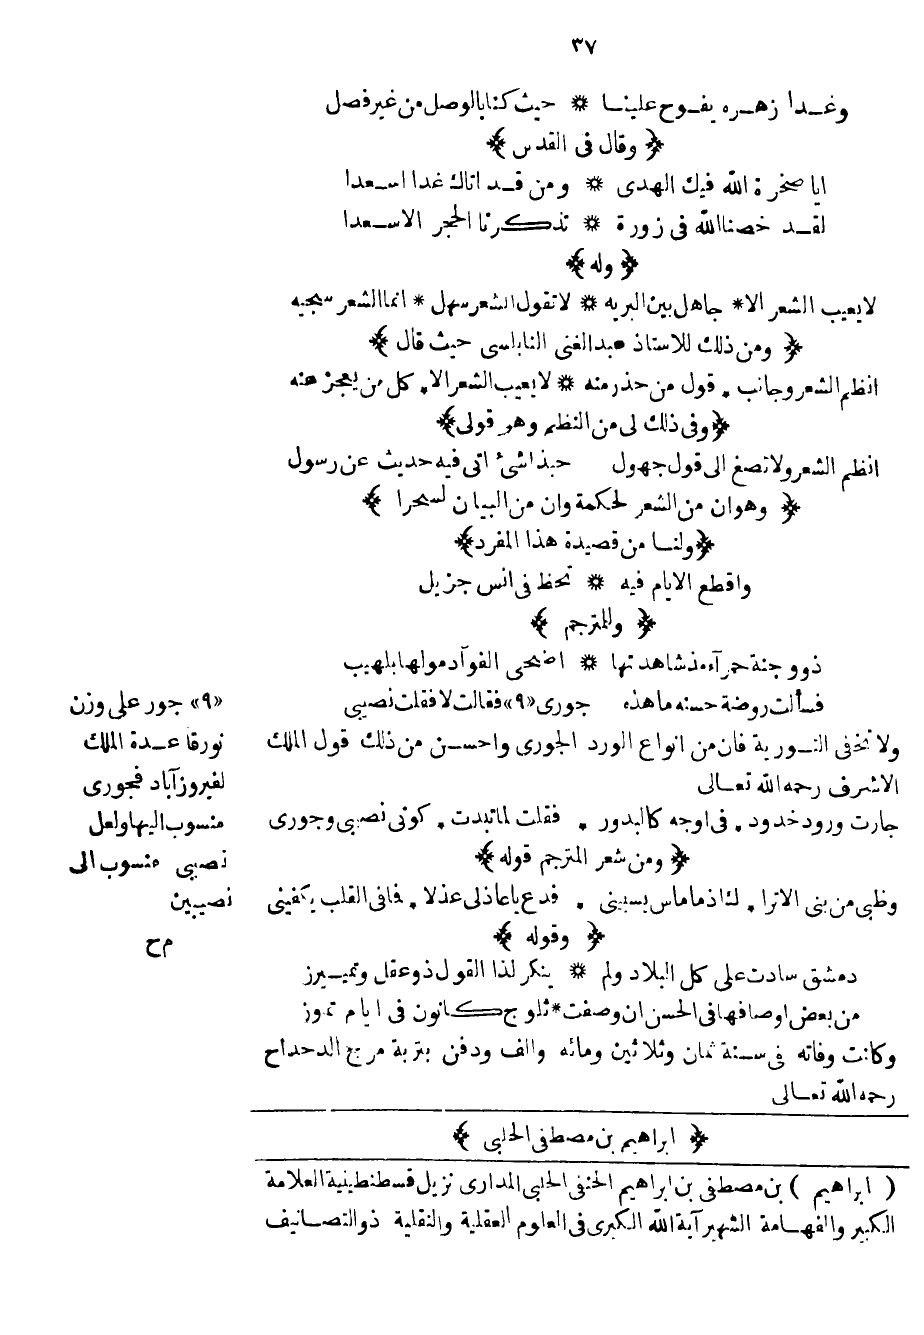 ٣٧
وغـدا زهـره يفـوح علينـا * حيث كنا بالوصل من غير فصل
﴿ وقال فى القدس ﴾
ايا صخرة الله فيك الهدى * ومن قـد اتاك غدا اسـعدا
لقـد خصنا الله فى زورة * تذكرنا الحجر الاسـعدا
﴿ وله ﴾
لا يعيب الشعر الا * جاهل بين البريه * لا تقول الشعر سهل * انما الشعر سجيه
﴿ ومن ذلك للاستاذ عبد الغنى النابلسى حيث قال ﴾
انظم الشعر وجانب . قول من حذر منه * لا يعيب الشعر الا . كل من يعجز عنه
﴿ وفى ذلك لى من النظم وهو قولى ﴾
انظم الشعر ولا تصغ الى قول جهول حبذا شئ اتى فيه حديث عن رسول
﴿ وهو ان من الشعر لحكمة وان من البيان لسحرا ﴾
﴿ ولنـا من قصيدة هذا المفرد ﴾
واقطع الايام فيه * تحظ فى انس جزيل
﴿ وللمترجم ﴾
ذو وجنة حمرآء مذ شاهدتها * اضحى الفوآد مولها بلهيب
فسألت روضة حسنه ما هذه جورى «٩» فقالت لا فقلت نصيبى
ولا تخفى التـورية فان من انواع الورد الجورى واحسـن من ذلك قول الملك
الاشرف رحمه الله تعـالى
جارت ورود خدود . فى اوجه كالبدور . فقلت لما تبدت . كونى نصيبى وجورى
﴿ ومن شعر المترجم قوله ﴾
وظبى من بنى الاترا . ك اذا ما ماس يسبينى . فدع يا عاذلى عذلا . فما فى القلب يكفينى
﴿ وقوله ﴾
دمشق سادت على كل البلاد ولم * ينكر لذا القول ذو عقل وتميـيز
من بعض اوصافها فى الحسن ان وصفت * ثلوج كانون فى ايام تموز
وكانت وفاته فى سـنة ثمان وثلاثين ومائه والف ودفن بتربة مرج الدحداح
رحمه الله تعـالى
﴿ ابراهيم بن مصطفى الحلبى ﴾
( ابراهيم ) بن مصطفى بن ابراهيم الحنفى الحلبى المدارى نزيل قسطنطينية العلامة
الكبير والفهـامة الشهير آية الله الكبرى فى العلوم العقلية والنقلية ذو التصـانيف
«٩» جور على وزن
نور قاعـدة الملك
لفيروز آباد فجورى
منسوب اليها ولعل
نصيبى منسوب الى
نصيبين
م ح